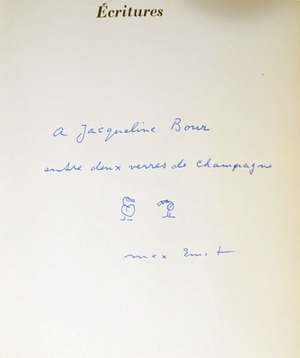 Écritures
A Jacqueline Bour
entre deux verres de Champagne
max Ernst